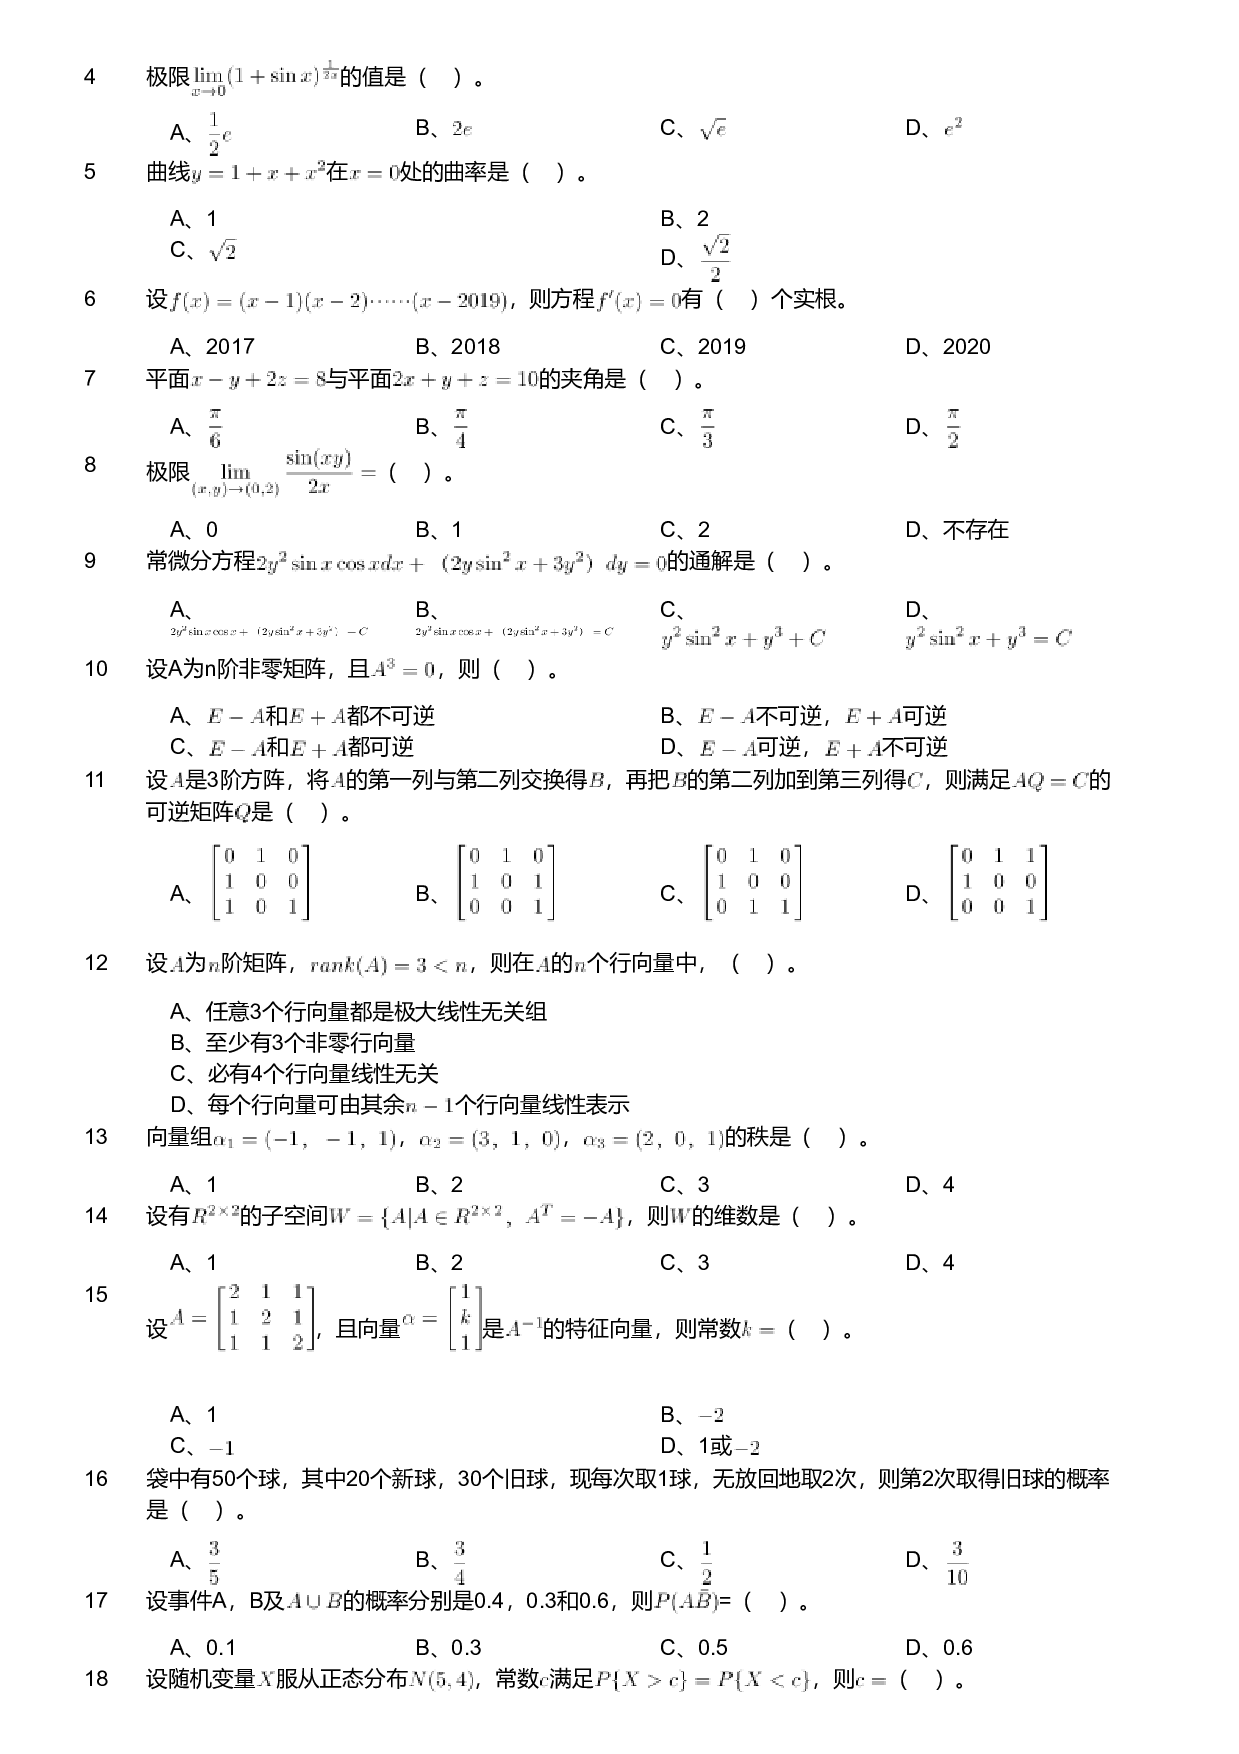 4 极限$\lim_{x \to 0}(1+\sin x)^{\frac{1}{2x}}$的值是（ ）。
A、$\frac{1}{2}e$ B、$2e$ C、$\sqrt{e}$ D、$e^2$
5 曲线$y=1+x+x^2$在$x=0$处的曲率是（ ）。
A、1 B、2
C、$\sqrt{2}$ D、$\frac{\sqrt{2}}{2}$
6 设$f(x)=(x-1)(x-2)\cdots\cdots(x-2019)$，则方程$f'(x)=0$有（ ）个实根。
A、2017 B、2018 C、2019 D、2020
7 平面$x-y+2z=8$与平面$2x+y+z=10$的夹角是（ ）。
A、$\frac{\pi}{6}$ B、$\frac{\pi}{4}$ C、$\frac{\pi}{3}$ D、$\frac{\pi}{2}$
8 极限$\lim_{(x,y)\to(0,2)}\frac{\sin(xy)}{2x}=$（ ）。
A、0 B、1 C、2 D、不存在
9 常微分方程$2y^2\sin x\cos xdx+（2y\sin^2x+3y^2）dy=0$的通解是（ ）。
A、 B、 C、 D、
$2y^2\sin x\cos x+（2y\sin^2x+3y^2）-C$ $2y^2\sin x\cos x+（2y\sin^2x+3y^2）=C$ $y^2\sin^2x+y^3+C$ $y^2\sin^2x+y^3=C$
10 设A为n阶非零矩阵，且$A^3=0$，则（ ）。
A、$E-A$和$E+A$都不可逆 B、$E-A$不可逆，$E+A$可逆
C、$E-A$和$E+A$都可逆 D、$E-A$可逆，$E+A$不可逆
11 设$A$是3阶方阵，将$A$的第一列与第二列交换得$B$，再把$B$的第二列加到第三列得$C$，则满足$AQ=C$的
可逆矩阵$Q$是（ ）。
A、$\begin{bmatrix}0&1&0\\1&0&0\\1&0&1\end{bmatrix}$ B、$\begin{bmatrix}0&1&0\\1&0&1\\0&0&1\end{bmatrix}$ C、$\begin{bmatrix}0&1&0\\1&0&0\\0&1&1\end{bmatrix}$ D、$\begin{bmatrix}0&1&1\\1&0&0\\0&0&1\end{bmatrix}$
12 设$A$为$n$阶矩阵，$rank(A)=3<n$，则在$A$的$n$个行向量中，（ ）。
A、任意3个行向量都是极大线性无关组
B、至少有3个非零行向量
C、必有4个行向量线性无关
D、每个行向量可由其余$n-1$个行向量线性表示
13 向量组$\alpha_1=(-1，-1，1)$，$\alpha_2=(3，1，0)$，$\alpha_3=(2，0，1)$的秩是（ ）。
A、1 B、2 C、3 D、4
14 设有$R^{2\times2}$的子空间$W=\{A|A\in R^{2\times2}，A^T=-A\}$，则$W$的维数是（ ）。
A、1 B、2 C、3 D、4
15 设$A=\begin{bmatrix}2&1&1\\1&2&1\\1&1&2\end{bmatrix}$，且向量$\alpha=\begin{bmatrix}1\\k\\1\end{bmatrix}$是$A^{-1}$的特征向量，则常数$k=$（ ）。
A、1 B、$-2$
C、$-1$ D、1或$-2$
16 袋中有50个球，其中20个新球，30个旧球，现每次取1球，无放回地取2次，则第2次取得旧球的概率
是（ ）。
A、$\frac{3}{5}$ B、$\frac{3}{4}$ C、$\frac{1}{2}$ D、$\frac{3}{10}$
17 设事件A，B及$A\cup B$的概率分别是0.4，0.3和0.6，则$P(A\bar{B})$=（ ）。
A、0.1 B、0.3 C、0.5 D、0.6
18 设随机变量$X$服从正态分布$N(5,4)$，常数$c$满足$P\{X>c\}=P\{X<c\}$，则$c=$（ ）。